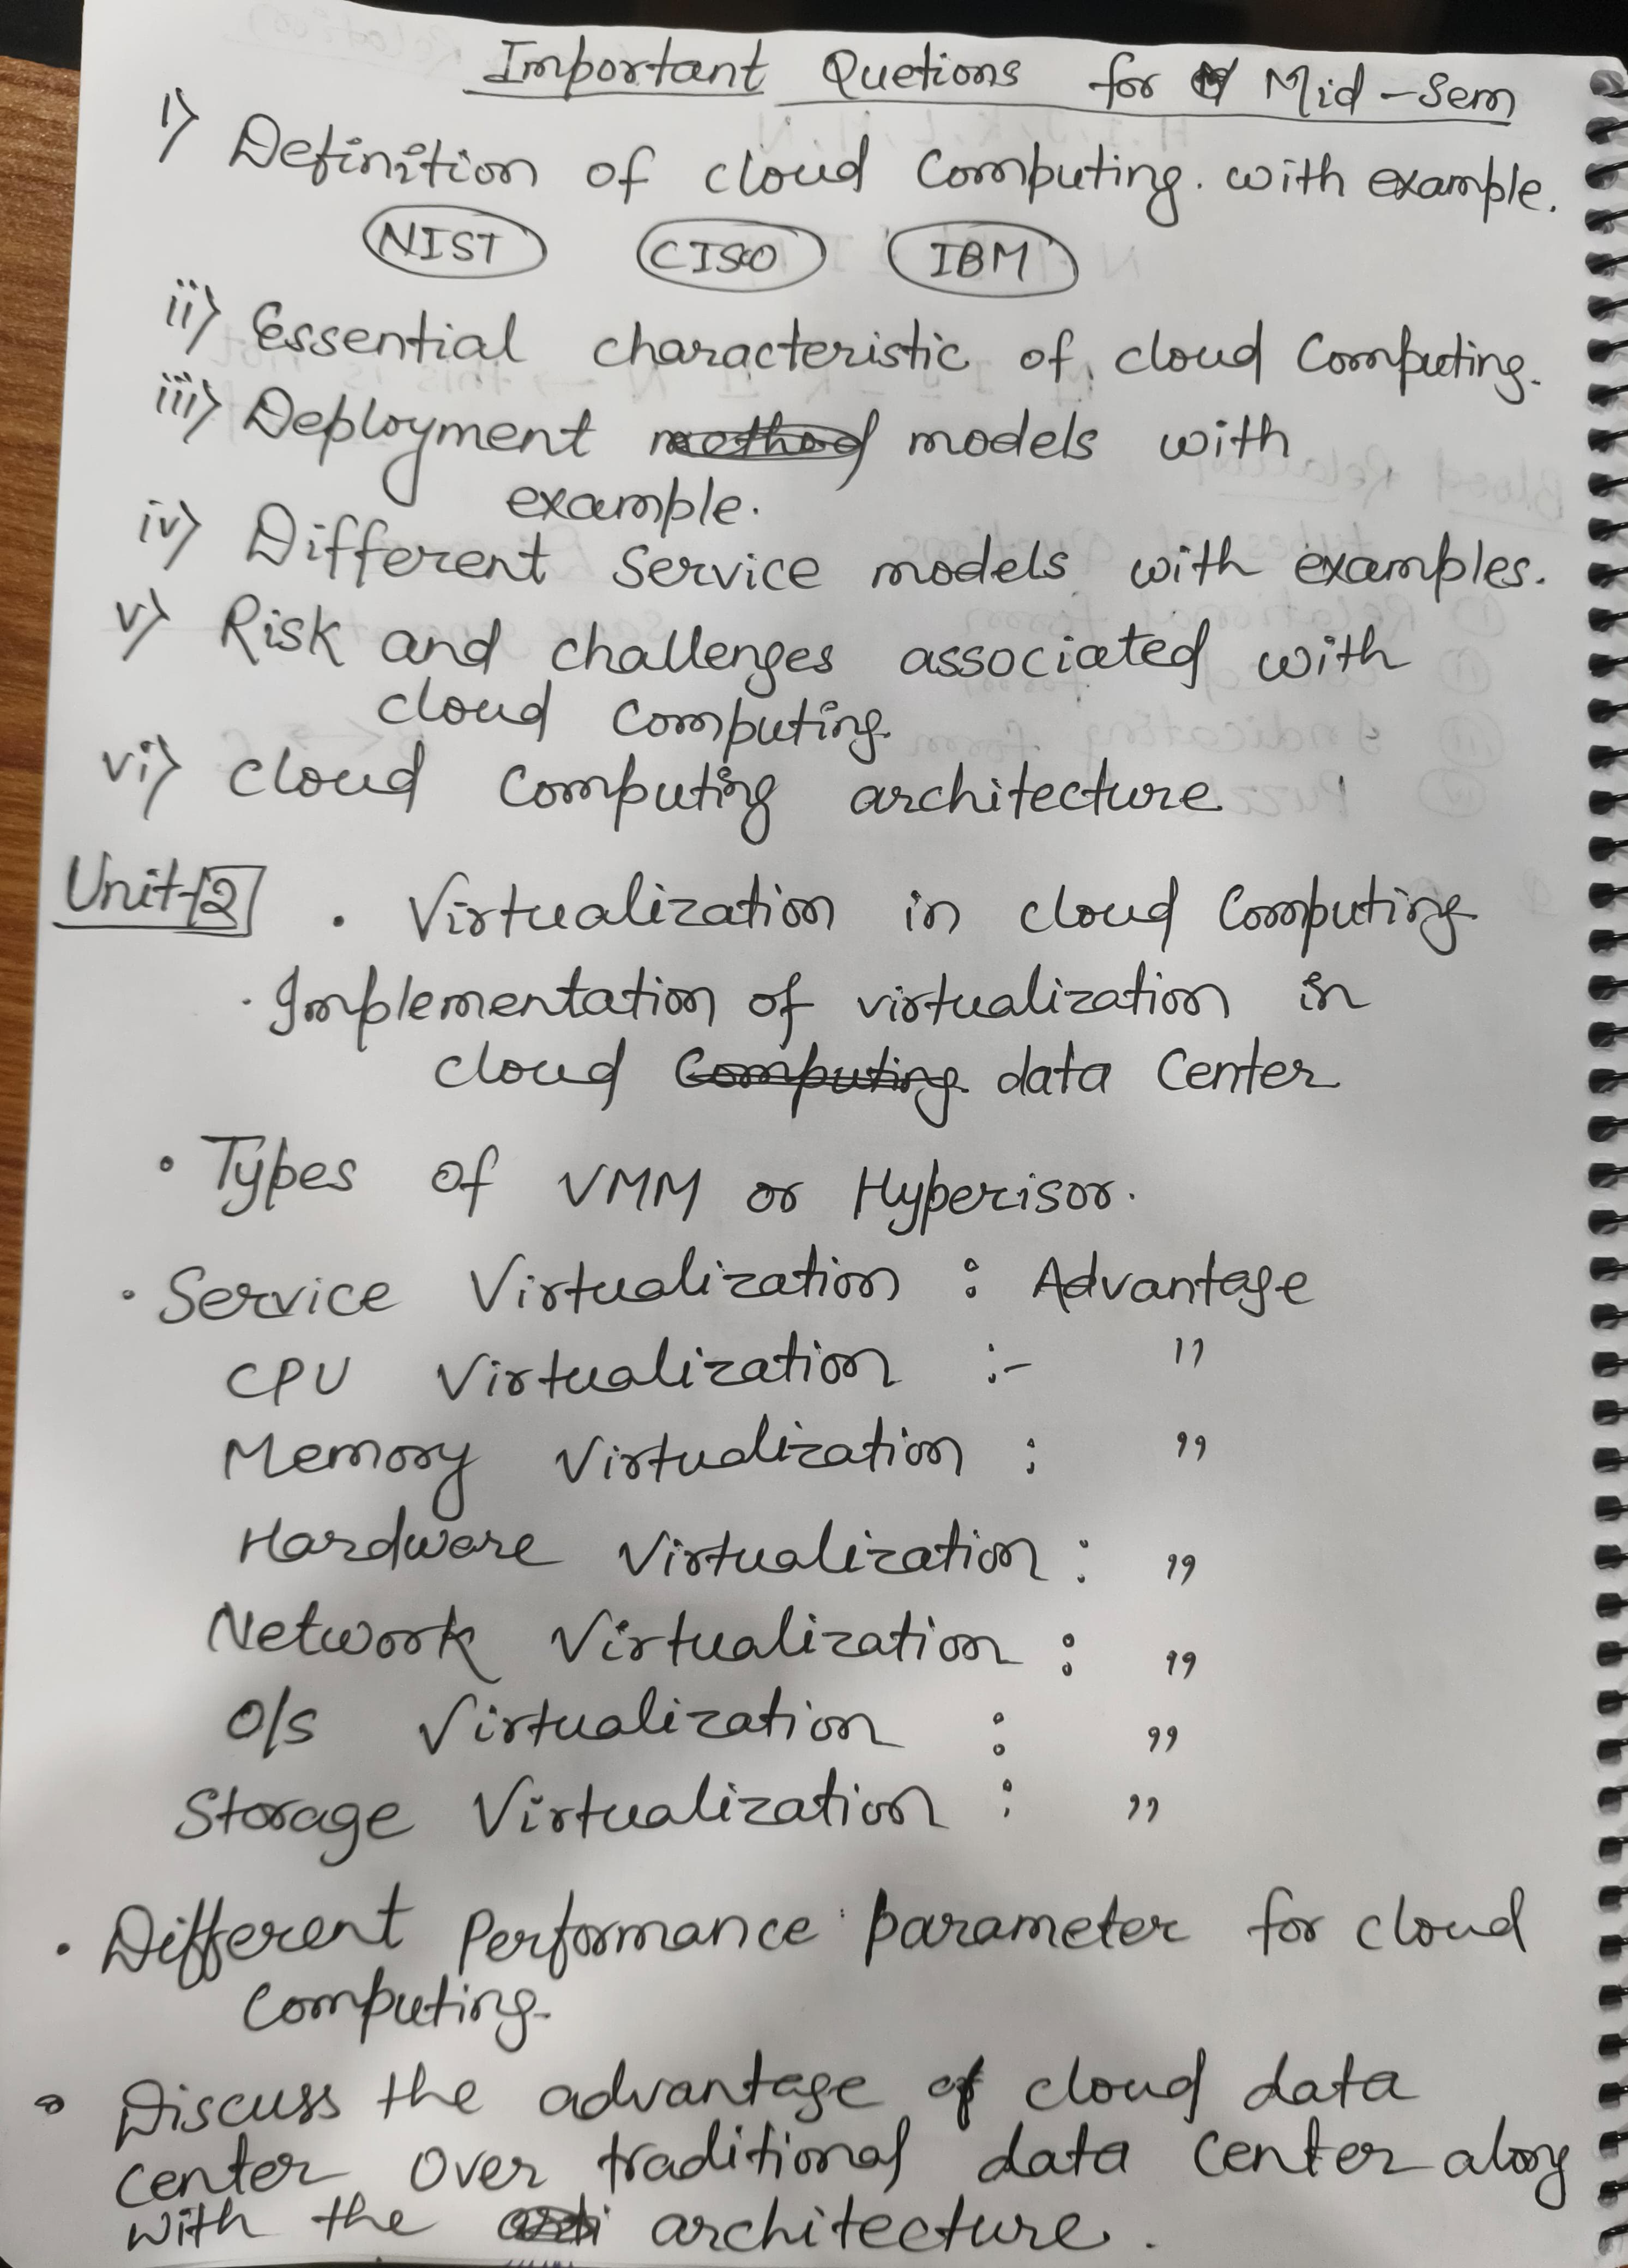 Important Quetions for Mid-Sem
i) Definition of cloud Computing. with example.
NIST CISO IBM
ii) Essential characteristic of cloud Computing.
iii) Deployment method models with
example.
iv) Different Service models with examples.
v) Risk and challenges associated with
cloud Computing.
vi) cloud Computing architecture
Unit-2 . Virtualization in cloud Computing
. Implementation of virtualization in
cloud Computing data Center
• Types of VMM or Hyperisor.
• Service Virtualization : Advantage
CPU Virtualization :- "
Memory Virtualization : "
Hardware Virtualization : "
Network Virtualization : "
O/S Virtualization : "
Storage Virtualization : "
• Different Performance parameter for cloud
Computing.
• Discuss the advantage of cloud data
center over traditional data Center along
with the architecture.